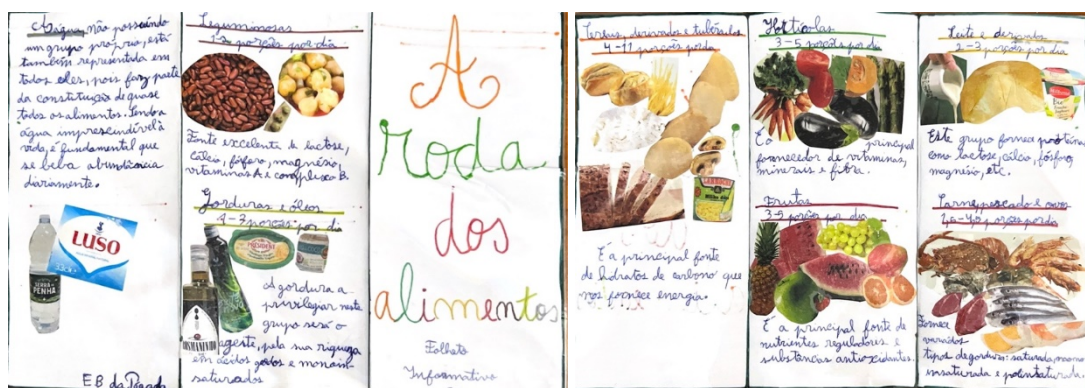 A água, não possuindo
um grupo próprio, está
também representada em
todos eles, pois faz parte
da constituição de quase
todos os alimentos. Sendo a
água imprescindível à
vida, é fundamental que
se beba abundância
diariamente.
LUSO
SERRA
PENHA
EB da
Leguminosas
1-2 porções por dia
Fonte excelente de lactose,
cálcio, fósforo, magnésio,
vitaminas A e complexo B.
Gorduras e óleos
1-3 porções por dia
PRESIDENT
A gordura a
privilegiar neste
grupo será o
azeite, pela sua riqueza
em ácidos gordos e monoin-
saturados
A
roda
dos
alimentos
Folheto
Informativo
Cereais, derivados e tubérculos
4-11 porções por dia
É a principal fonte
de hidratos de carbono que
nos fornece energia.
Hortícolas
3-5 porções por dia
É o principal
fornecedor de vitaminas,
minerais e fibra.
Frutas
3-5 porções por dia
É a principal fonte de
nutrientes reguladores e
substâncias antioxidantes.
Leite e derivados
2-3 porções por dia
Este grupo fornece proteínas
como lactose, cálcio, fósforo,
magnésio, etc.
Carne, pescado e ovos
1,5-4,5 porções por dia
Fornece
variados
tipos de gordura: saturada, mono
insaturada e polinsaturada.